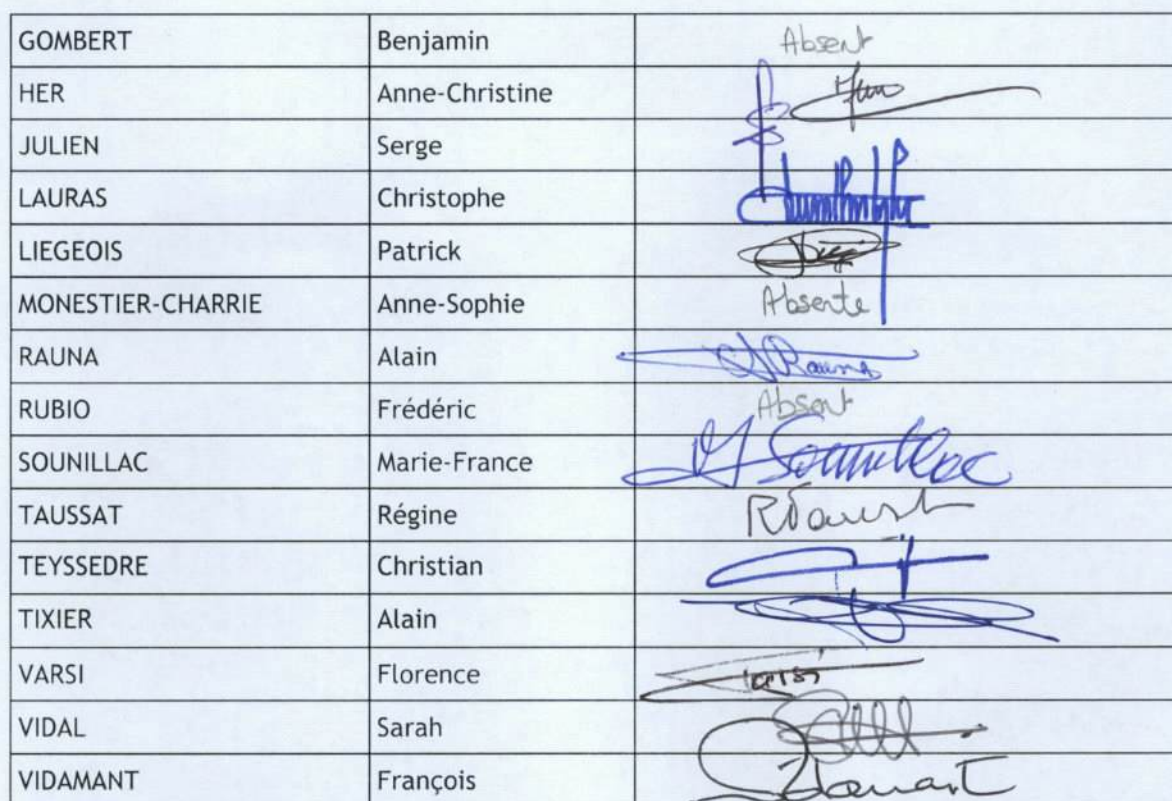 GOMBERT Benjamin Absent
HER Anne-Christine
JULIEN Serge
LAURAS Christophe
LIEGEOIS Patrick
MONESTIER-CHARRIE Anne-Sophie Absente
RAUNA Alain Rauna
RUBIO Frédéric Absent
SOUNILLAC Marie-France Sounillac
TAUSSAT Régine
TEYSSEDRE Christian
TIXIER Alain
VARSI Florence Varsi
VIDAL Sarah
VIDAMANT François